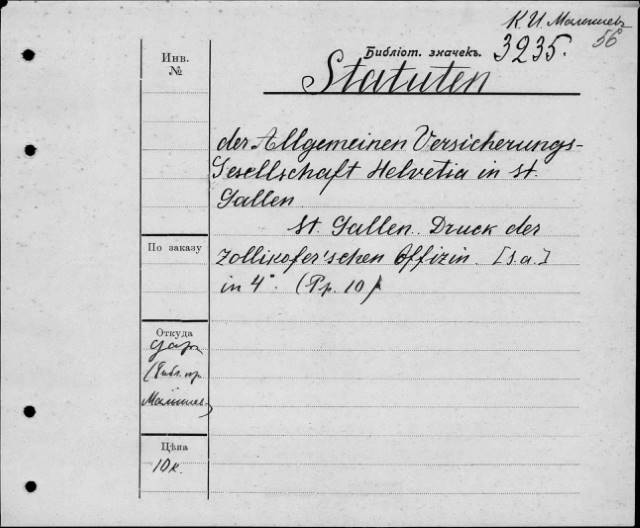 К.И. Малышев
56
Библіот. значекъ.
3235.
Инв.
№
Statuten
der Allgemeinen Versicherungs-
Gesellschaft Helvetia in St.
Gallen
St. Gallen. Druck der
Zollikofer'schen Offizin. [s.a.]
in 4°. (Pp. 10)
По заказу
Откуда
даръ
(Библ. пр.
Малышев)
Цѣна
10 к.